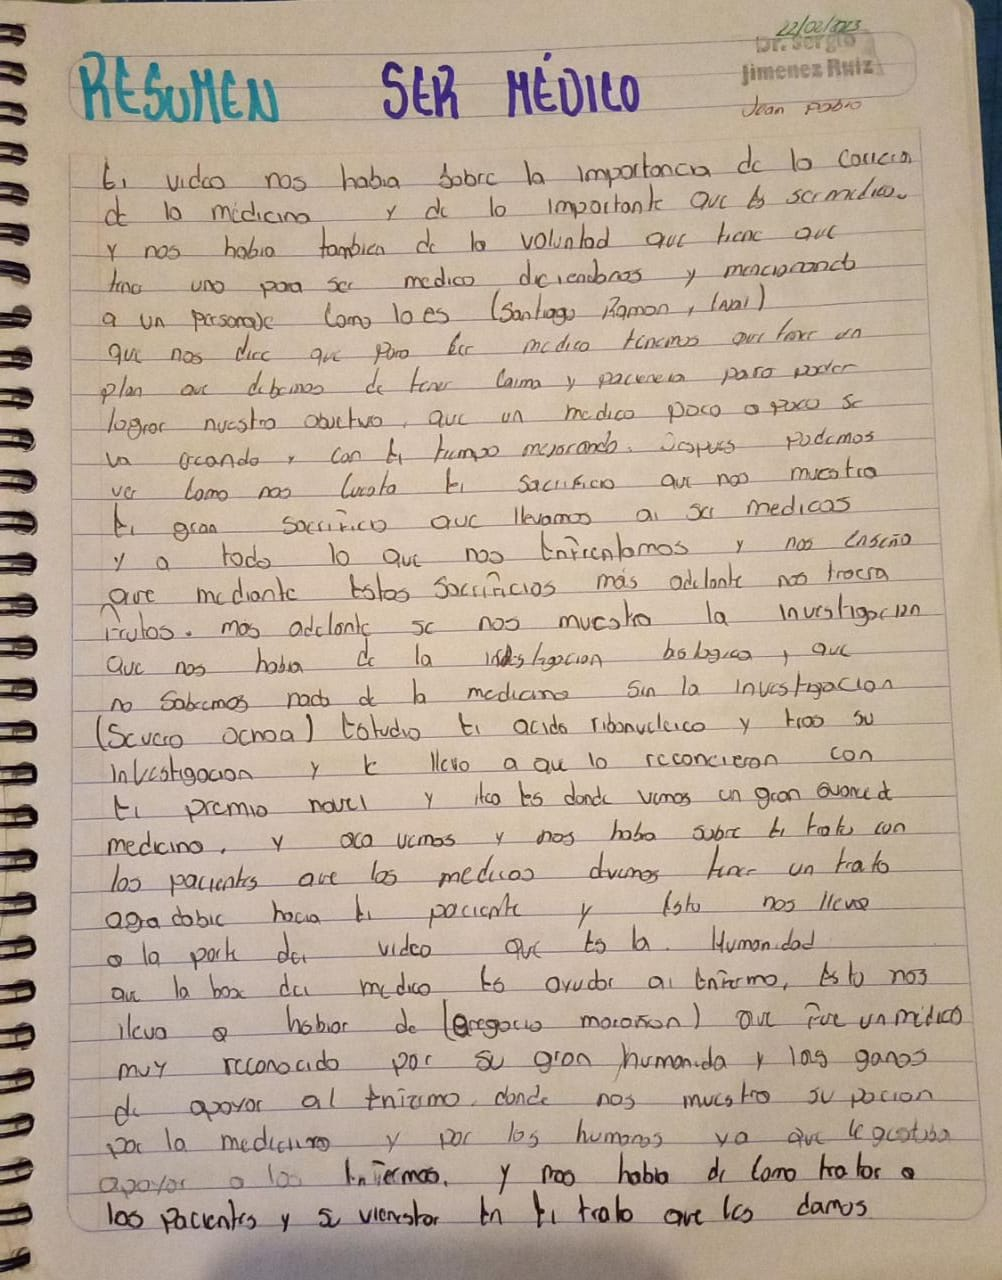 22/02/2023
Dr. Sergio
Jimenez Ruiz
RESUMEN SER MÉDICO
Jean Pablo
El video nos habla sobre la importancia de la carrera
de la medicina y de lo importante que es ser medico.
y nos habla tambien de la voluntad que tiene que
tener uno para ser medico diciendonos y mencionando
a un personaje como lo es (Santiago Ramon, Cajal)
que nos dice que para ser medico tenemos que tener un
plan que debemos de tener calma y paciencia para poder
lograr nuestro objetivo, que un medico poco a poco se
va creando y con el tiempo mejorando. Despues podemos
ver como nos cuesta el sacrificio que nos muestra
El gran sacrificio que llevamos al ser medicos
y a todo lo que nos enfrentamos y nos enseña
que mediante estos sacrificios más adelante nos traera
frutos. mas adelante se nos muestra la investigacion
que nos habla de la investigacion biologica, que
no sabemos nada de la medicina sin la investigacion
(Severo ochoa) Estudio el acido ribonucleico y tras su
investigacion y le llevo a que lo reconcieron con
El premio novel y es donde vemos un gran avance d
medicina, y aca vemos y nos habla sobre el trato con
los pacientes que los medicos devemos tener un trato
agradable hacia el paciente y esto nos lleva
a la parte del video que es la Humanidad
que la base del medico es ayudar al enfermo, esto nos
lleva a hablar de (Gregorio marañon) que fue un médico
muy reconocido por su gran humanida y las ganas
de apoyar al enfermo donde nos muestra su pacion
por la medicina y por los humanos ya que le gustaba
apoyar a los enfermos. y nos habla de como tratar a
los pacientes y su vienestar En El trato que les damos